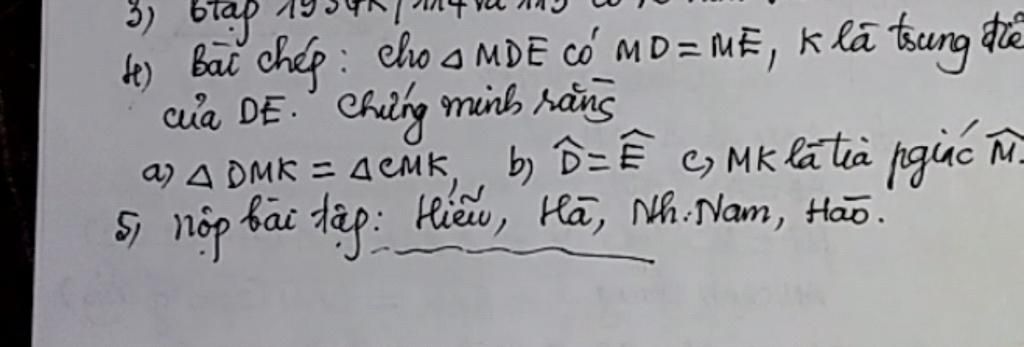 3) Btập
4) Bài chép: Cho △ MDE có MD = ME, K là trung
của DE. Chứng minh rằng
a) △ DMK = △ CMK, b) D̂ = Ê c) MK là tia pgiác M̂
5, Nộp bài tập: Hiếu, Hà, Nh. Nam, Hào.